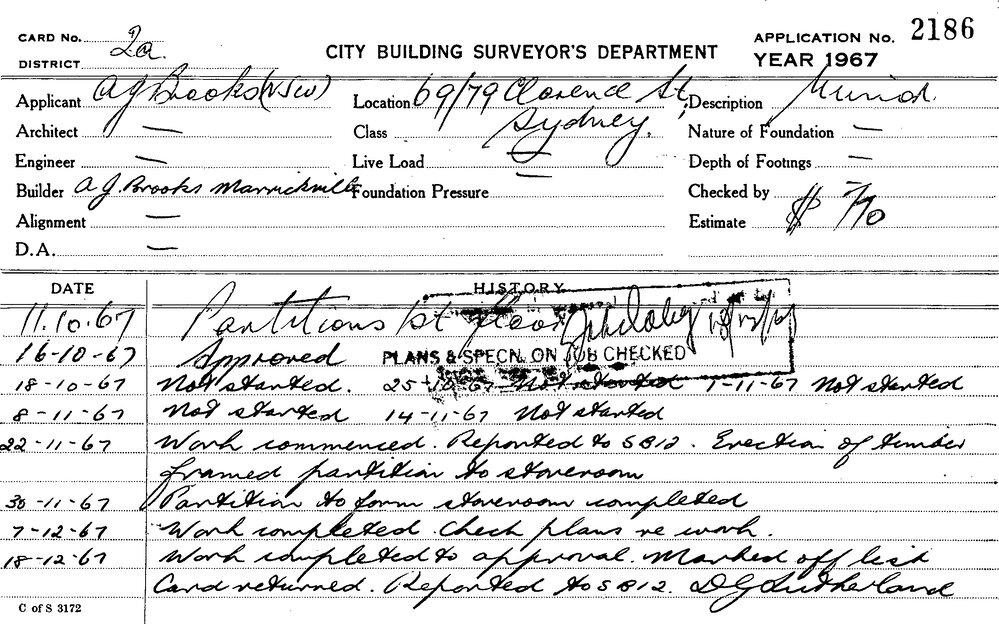 CARD No. 2a.
DISTRICT
CITY BUILDING SURVEYOR'S DEPARTMENT
APPLICATION No. 2186
YEAR 1967
Applicant A J Brooks (NSW) Location 69/79 Clarence St, Description
Architect — Class Sydney. Nature of Foundation —
Engineer — Live Load — Depth of Footings —
Builder A J. Brooks Marrickville Foundation Pressure — Checked by —
Alignment — Estimate $ 770
D.A. —
DATE HISTORY
11.10.67 Partitions 1st floor
16-10-67 Approved PLANS & SPECN. ON JOB CHECKED
18-10-67 Not started. 25-10-67 Not started 1-11-67 Not started
8-11-67 Not started 14-11-67 Not started
22-11-67 Work commenced. Reported to SB12. Erection of timber
framed partition to storeroom
30-11-67 Partition to form storeroom completed
7-12-67 Work completed. Check plans re work.
18-12-67 Work completed to approval. Marked off list
Card returned. Reported to SB12. D J Sutherland
C of S 3172